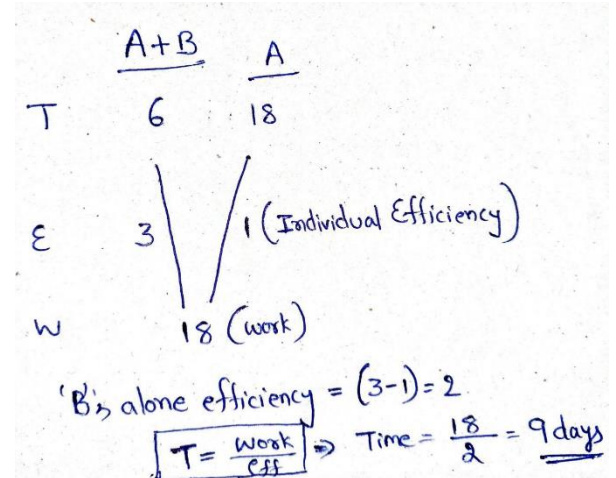 A+B A
T 6 18
E 3 1 (Individual Efficiency)
W 18 (work)
'B's alone efficiency = (3-1) = 2
T = work/eff ⇒ Time = 18/2 = 9 days